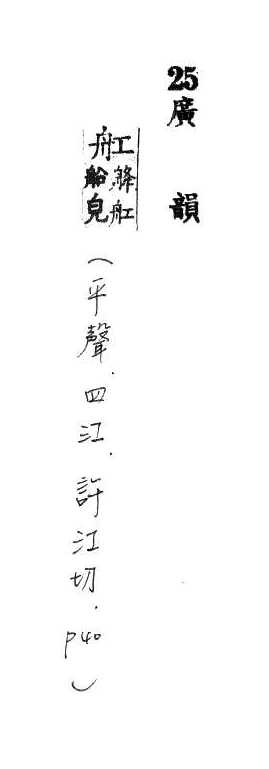 25廣韻
舡舽舡船皃（平聲．四江．許江切．P40）